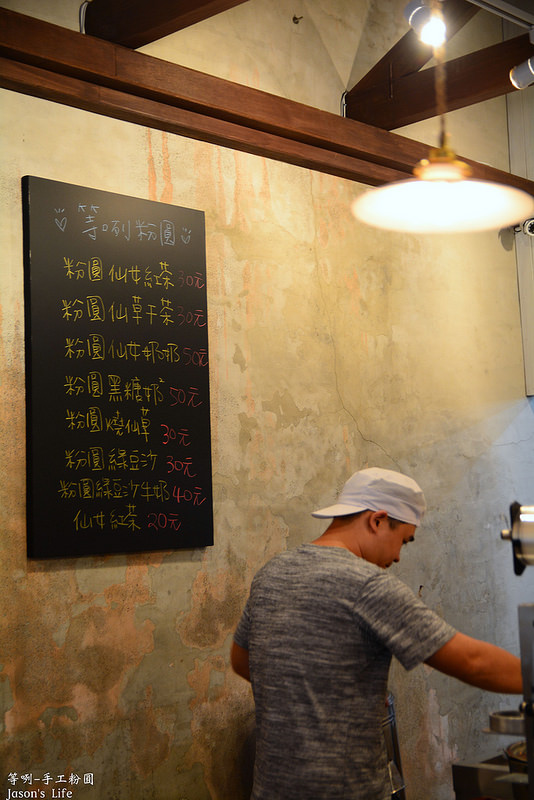 等咧粉圓
粉圓仙女紅茶30元
粉圓仙草干茶30元
粉圓仙女奶奶50元
粉圓黑糖奶² 50元
粉圓燒仙草30元
粉圓綠豆沙30元
粉圓綠豆沙牛奶40元
仙女紅茶20元
等咧-手工粉圓
Jason's Life